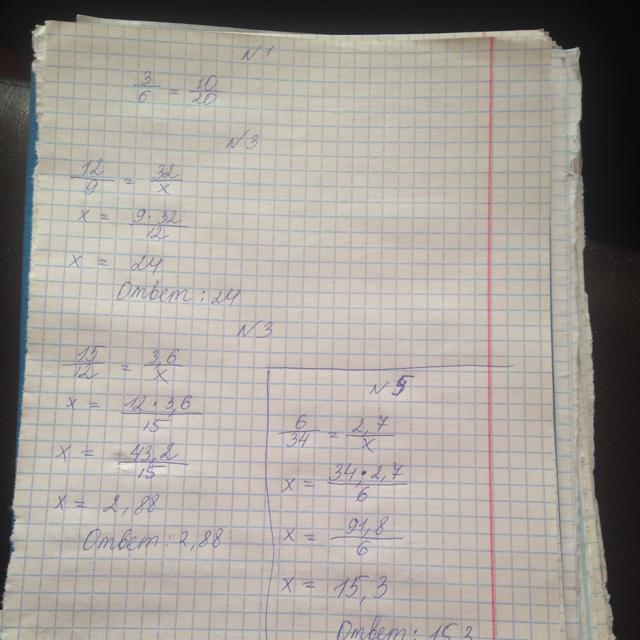 N1
3/6 = 10/20
N3
12/9 = 32/x
x = 9·32/12
x = 24
Ответ: 24
N3
15/12 = 3,6/x
x = 12·3,6/15
x = 43,2/15
x = 2,88
Ответ: 2,88
N5
6/34 = 2,7/x
x = 34·2,7/6
x = 91,8/6
x = 15,3
Ответ: 15,3